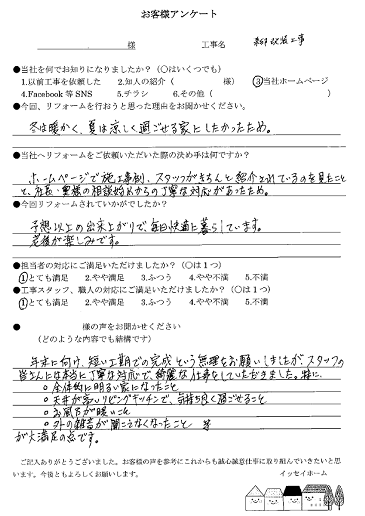 お客様アンケート
様 工事名 全部改装工事
●当社を何でお知りになりましたか？（○はいくつでも）
1.以前工事を依頼した 2.知人の紹介（ 様） ③当社ホームページ
4.Facebook等SNS 5.チラシ 6.その他（ ）
●今回、リフォームを行おうと思った理由をお聞かせください。
冬は暖かく、夏は涼しく過ごせる家にしたかったため。
●当社へリフォームをご依頼いただいた際の決め手は何ですか？
ホームページで施工事例、スタッフがきちんと紹介されているのを見たこと
と、社長・奥様の相談時からの丁寧な対応があったため。
●今回リフォームされていかがでしたか？
予想以上の出来上がりで毎日快適に暮らしています。
老後が楽しみです。
●担当者の対応にご満足いただけましたか？（○は1つ）
①とても満足 2.やや満足 3.ふつう 4.やや不満 5.不満
●工事スタッフ、職人の対応にご満足いただけましたか？（○は1つ）
①とても満足 2.やや満足 3.ふつう 4.やや不満 5.不満
● 様の声をお聞かせください
（どのような内容でも結構です）
年末に向け、短い工期での完成という無理をお願いしましたが、スタッフの
皆さんには本当に丁寧な対応で、綺麗な仕事をしていただきました。特に、
○ 全体的に明るい家になったこと
○ 天井が高いリビングキッチンで、気持ち良く過ごせること
○ お風呂が暖いこと
○ 外の雑音が聞こえなくなったこと 等
が大満足の点です。
ご記入ありがとうございました。お客様の声を参考にこれからも誠心誠意仕事に取り組んでいきたいと思
います。今後ともよろしくお願いします。 イッセイホーム